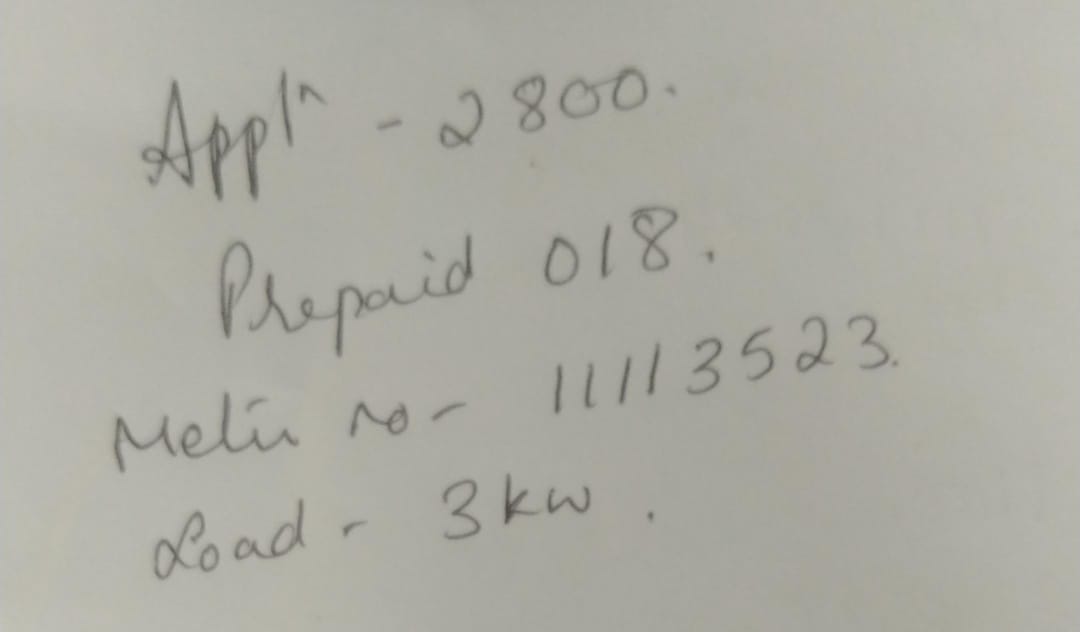 Appl^n - 2800.
Prepaid 018.
Meter no - 11113523.
Load - 3 kw.